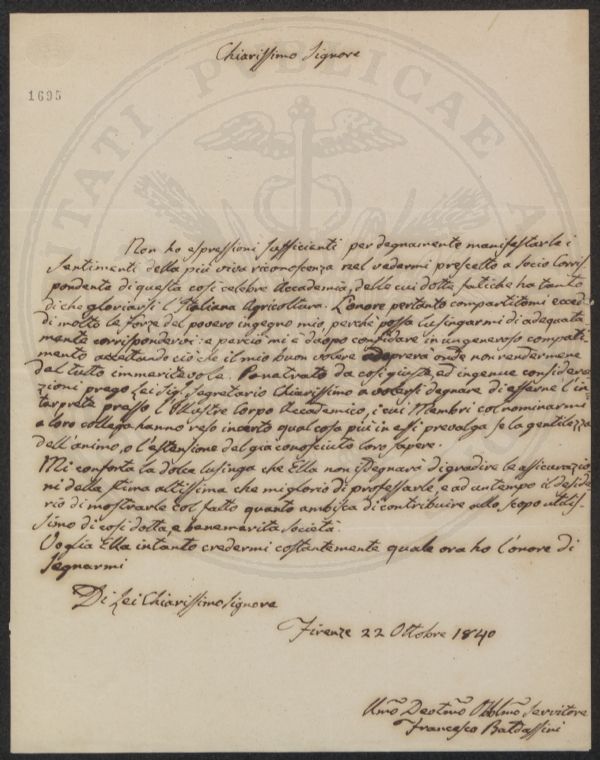 Chiarissimo Signore
1695
UTILITATI PUBLICAE
Non ho espressioni sufficienti per degnamente manifestarle i
sentimenti della più viva riconoscenza nel vedermi prescelto a socio corris-
pondente di questa così celebre Accademia, delle cui dotte fatiche ha tanto
di che gloriarsi l'Italiana Agricoltura. L'onore pertanto compartitomi ecced
di molto le forze del povero ingegno mio, perchè possa lusingarmi di adequata
mente corrispondervi: e perciò mi è d'uopo confidare in un generoso compati
mento accettando ciò che il mio buon volere adoprerà onde non rendermene
del tutto immeritevole. Penetrato da così giuste, ed ingenue considera
zioni prego Lei Sig. Segretario Chiarissimo a volersi degnare di esserne l'in
terprete presso l'Illustre Corpo Accademico, i cui Membri col nominarmi
a loro collega hanno reso incerto qual cosa più in essi prevalga se la gentilezza
dell'animo, o l'estensione del già conosciuto loro sapere.
Mi conforta la dolce lusinga che Ella non isdegnarà di gradire le assicurazio
ni della stima altissima che mi glorio di professarle, e ad un tempo il deside
rio di mostrarle col fatto quanto ambisca di contribuire allo scopo utilis-
simo di così dotta, e benemerita società.
Voglia Ella intanto credermi costantemente quale ora ho l'onore di
segnarmi
Di Lei Chiarissimo Signore
Firenze 22 Ottobre 1840
Umo Devotmo Obblmo Servitore
Francesco Baldassini